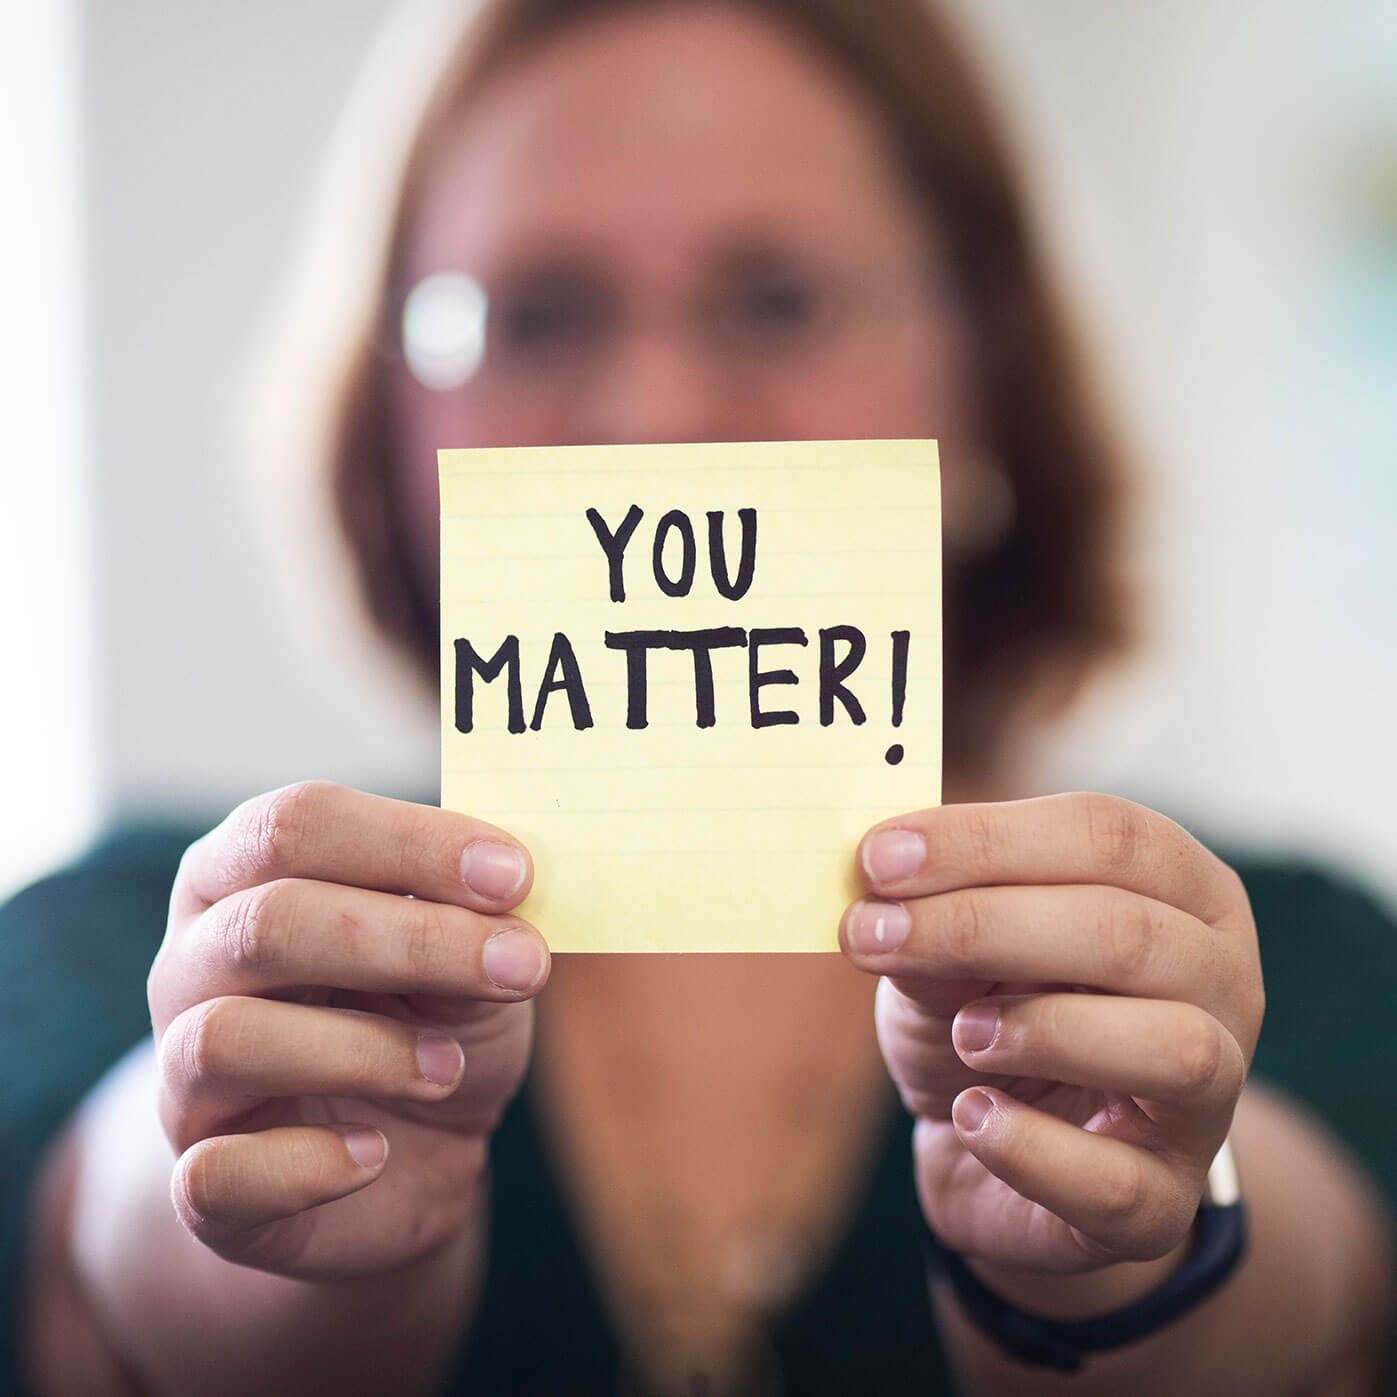 YOU
MATTER!